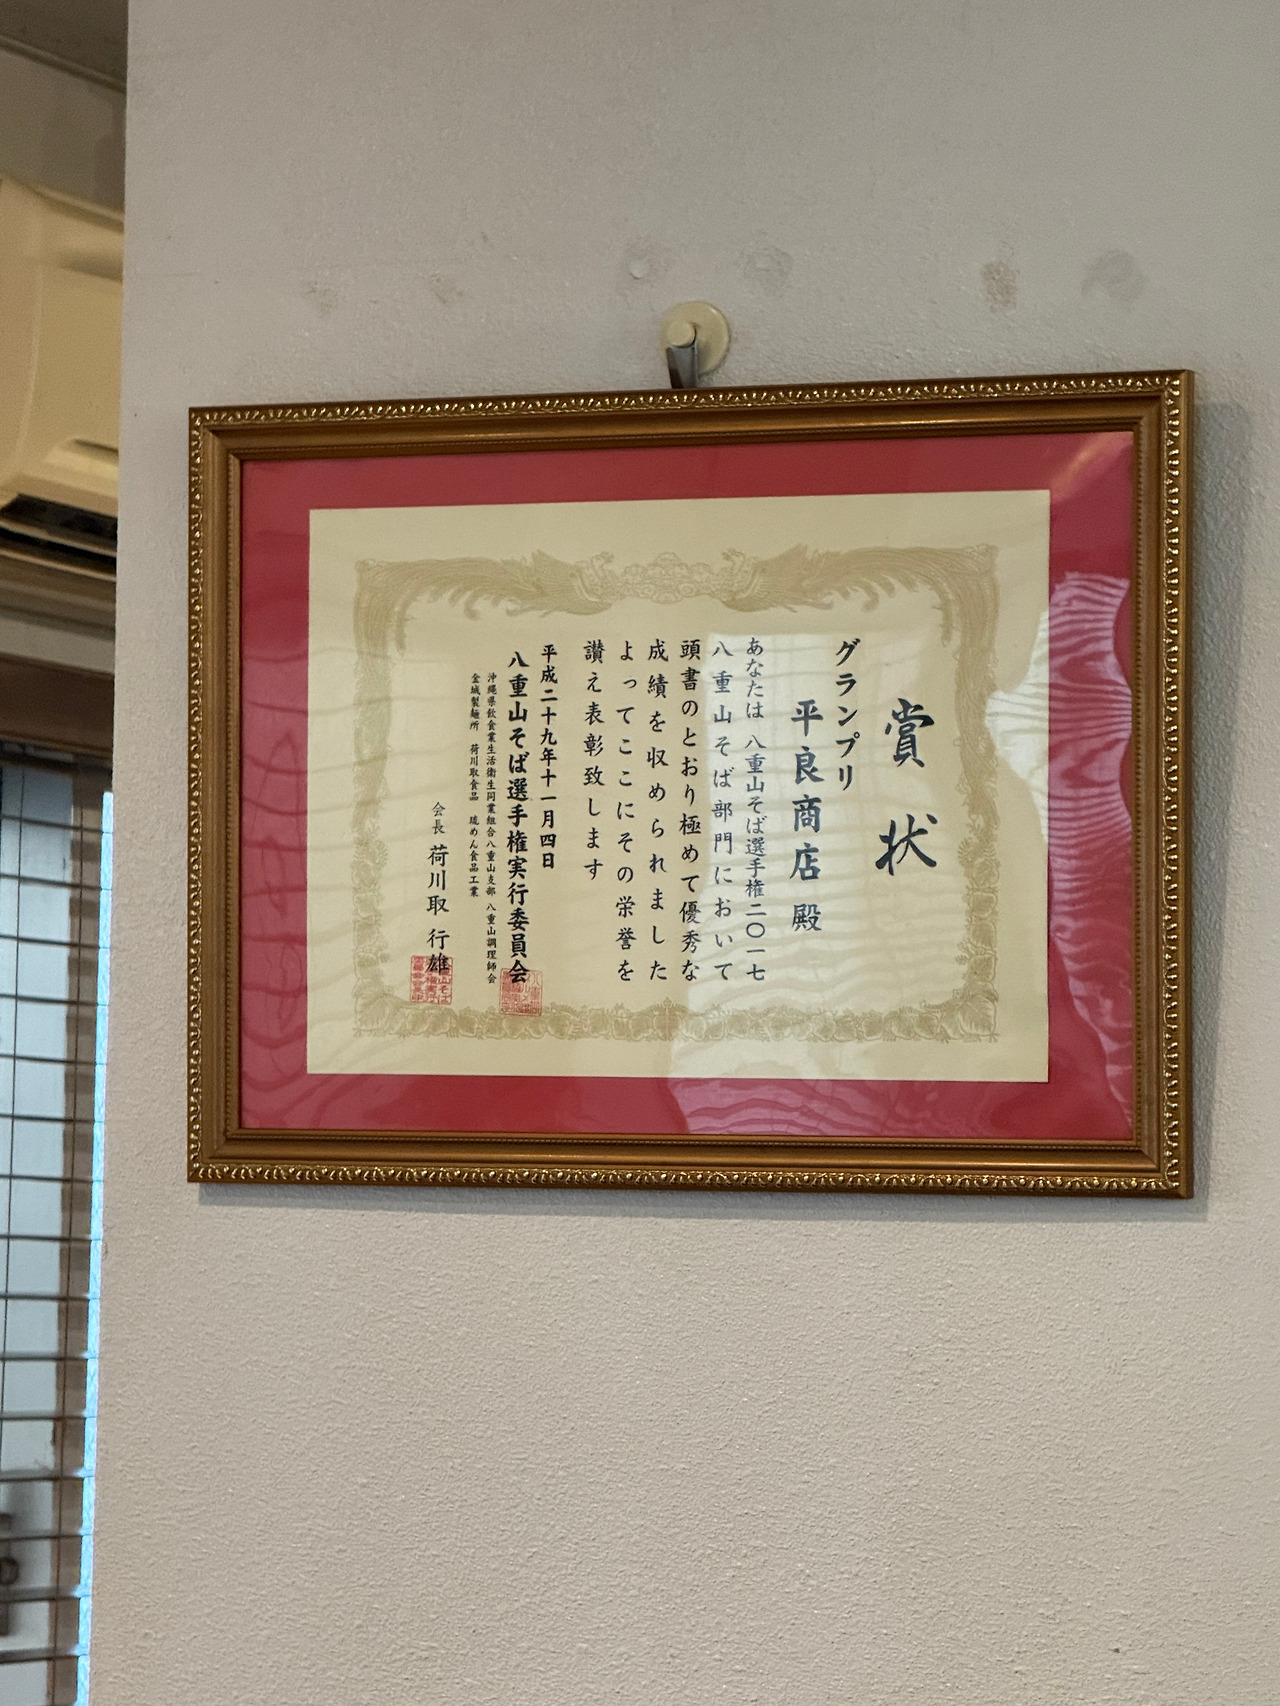 賞状
グランプリ
平良商店 殿
あなたは 八重山そば選手権二〇一七
八重山そば部門において
頭書のとおり極めて優秀な
成績を収められました
よってここにその栄誉を
讃え表彰致します
平成二十九年十一月四日
八重山そば選手権実行委員会
沖縄県飲食業生活衛生同業組合八重山支部 八重山調理師会
金城製麺所 荷川取食品 琉めん食品工業
会長 荷川取 行雄